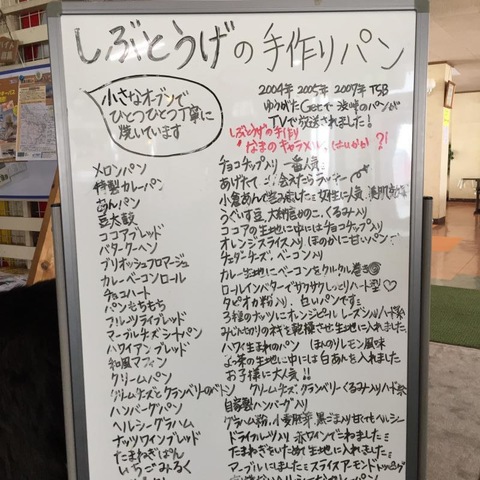 しぶとうげの手作りパン
小さなオーブンで
ひとつひとつ丁寧に
焼いています
2004年 2005年 2007年 TSB
ゆうがたGetで 渋峠のパンが
TVで放送されました!
しぶとうげの手作り
なまのキャラメル
メロンパン チョコチップ入り 一番人気
特製カレーパン あげたて 会えたらラッキー
あんパン 小倉あんで 女性に人気
豆大鼓 うぐいす豆、大納言かのこ、くるみ入り
ココアブレッド ココアの生地に中にはチョコチップ入り
バタークーヘン オレンジスライス入り ほのかに甘いパン
ブリオッシュフロマージュ チェダーチーズ、ベーコン入り
カレーベーコンロール カレー生地にベーコンをクルクル巻き
チョコハート ロールインバターでサクサクしっとりハート型♡
パンもちもち タピオカ粉入り、白いパンです
フルーツライブレッド 3種のナッツにオレンジピール レーズン入りハード系
マーブルチーズシートパン
ハワイアンブレッド ハワイ生まれのパン ほんのりレモン風味
和風マフィン の生地に中には白あんを入れました
クリームパン お子様に大人気!!
クリームチーズとクランベリーの クリームチーズ、クランベリーくるみ入りハード系
ハンバーグパン 自家製ハンバーグ入り
ヘルシーグラハム グラハム粉、小麦胚芽、黒ごま入り ヘルシー
ナッツワインブレッド ドライフルーツ入り 赤ワインでこねました
たまねぎぱん たまねぎをいためて生地に入れました
いちごみるく マーブルにしました スライスアーモンド